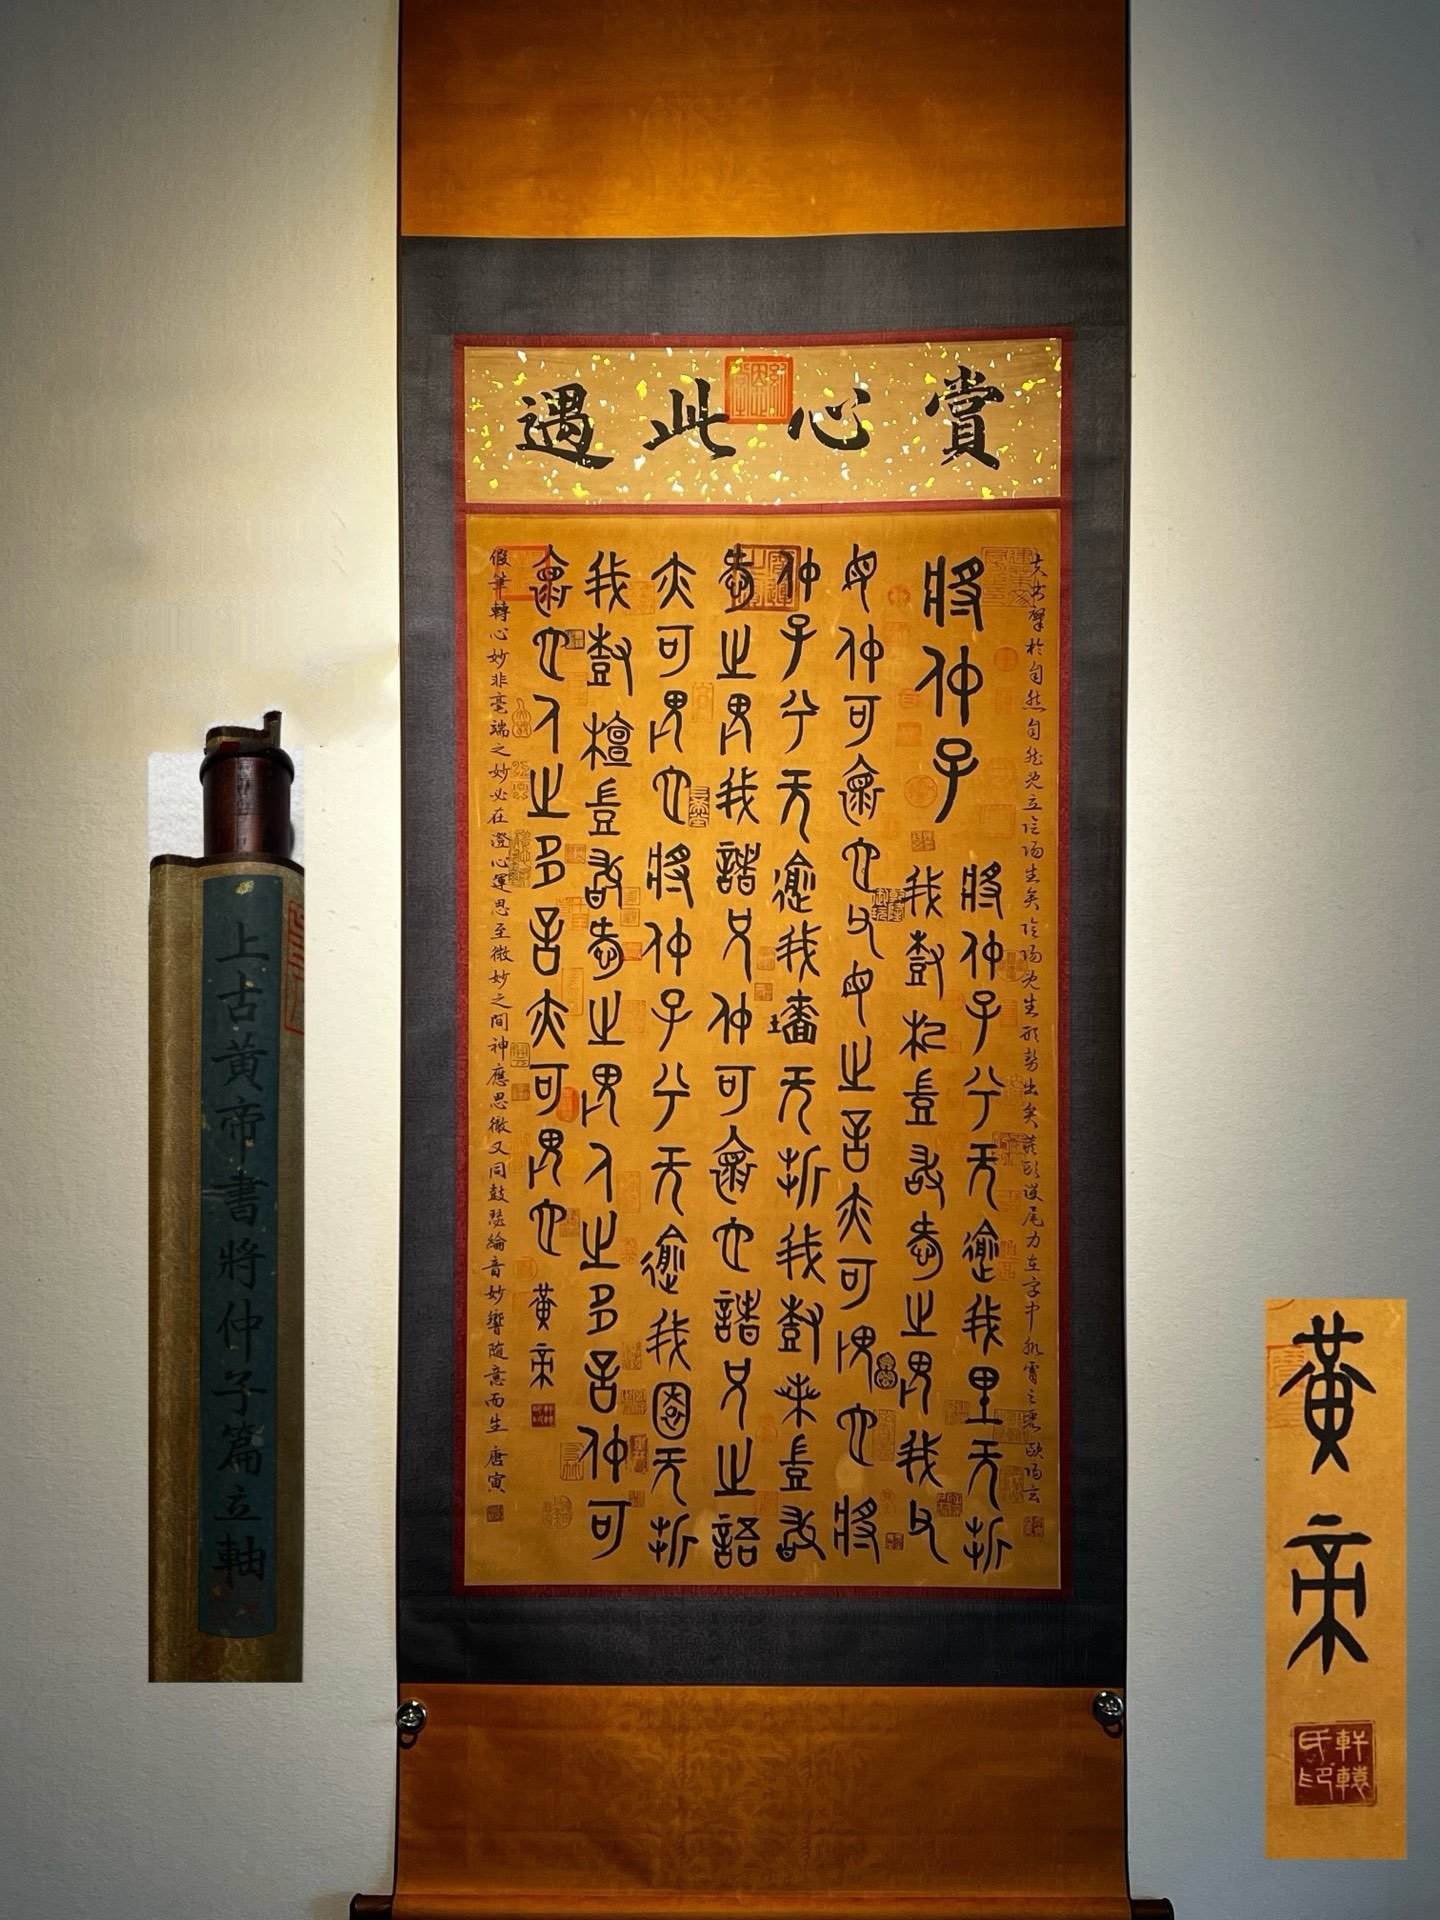 賞心此遇
夫書肇於自然自然既立陰陽生矣陰陽既生形勢出矣藏頭護尾力在字中肌膚之麗歐陽玄
將仲子
將仲子兮无逾我里无折
我樹杞豈敢愛之畏我父
母仲可懷也父母之言亦可畏也將
仲子兮无逾我墻无折我樹桑豈敢
愛之畏我諸兄仲可懷也諸兄之語
亦可畏也將仲子兮无逾我園无折
我樹檀豈敢愛之畏人之多言仲可
懷也人之多言亦可畏也黃帝
假筆轉心妙非毫端之妙必在澄心運思至微妙之間神應思徹又同鼓瑟綸音妙響隨意而生唐寅
上古黃帝書將仲子篇立軸
黃帝
軒轅
氏印